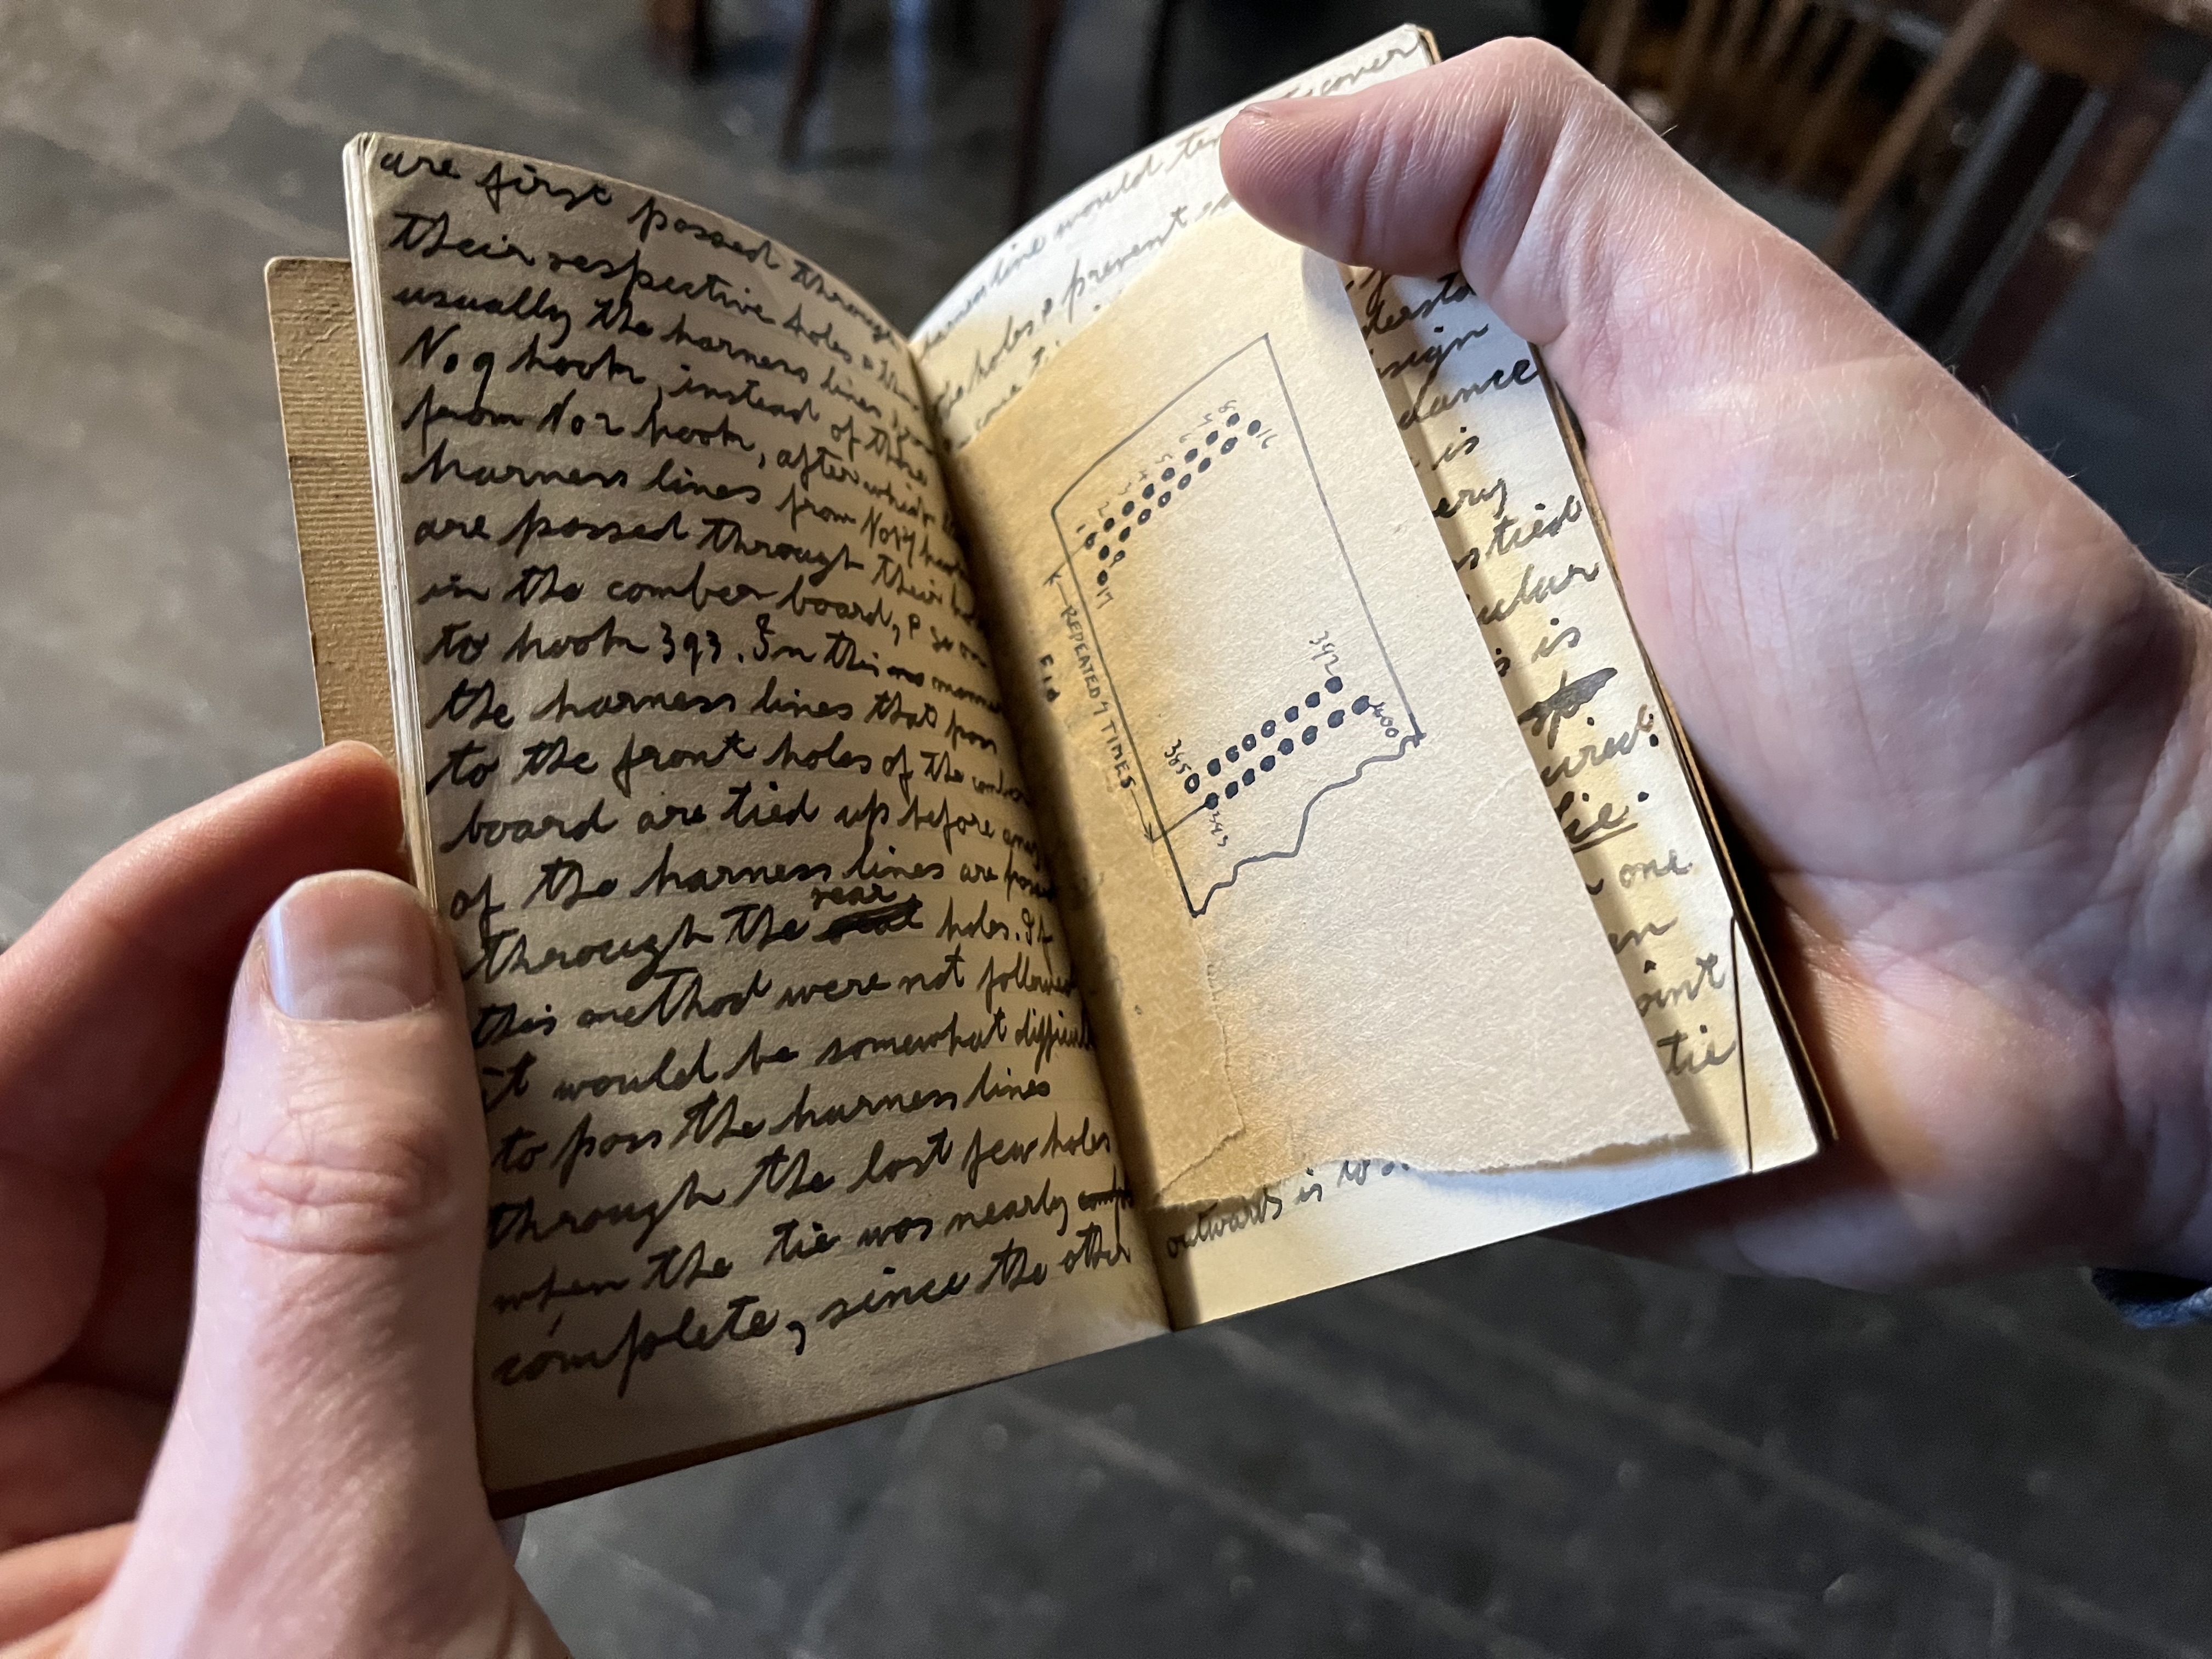 are first passed through
their respective holes &
usually the harness lines from
No 9 hook, instead of those
from No 2 hook, after which the
harness lines from No 17 hook
are passed through their
in the comber board, & so on
to hook 393. In this manner
the harness lines that pass
to the front holes of the comber
board are tied up before any
of the harness lines are passed
through the rear holes. If
this method were not followed
it would be somewhat difficult
to pass the harness lines
through the last few holes
when the tie was nearly
complete, since the other
cover
harness line would
the holes & prevent
1 2 3 4 5 6 7 8
16
9
17
REPEATED 4 TIMES
FIG
392
385
400
393
design
is
tied
is
tie.
one
point
tie
outwards is to